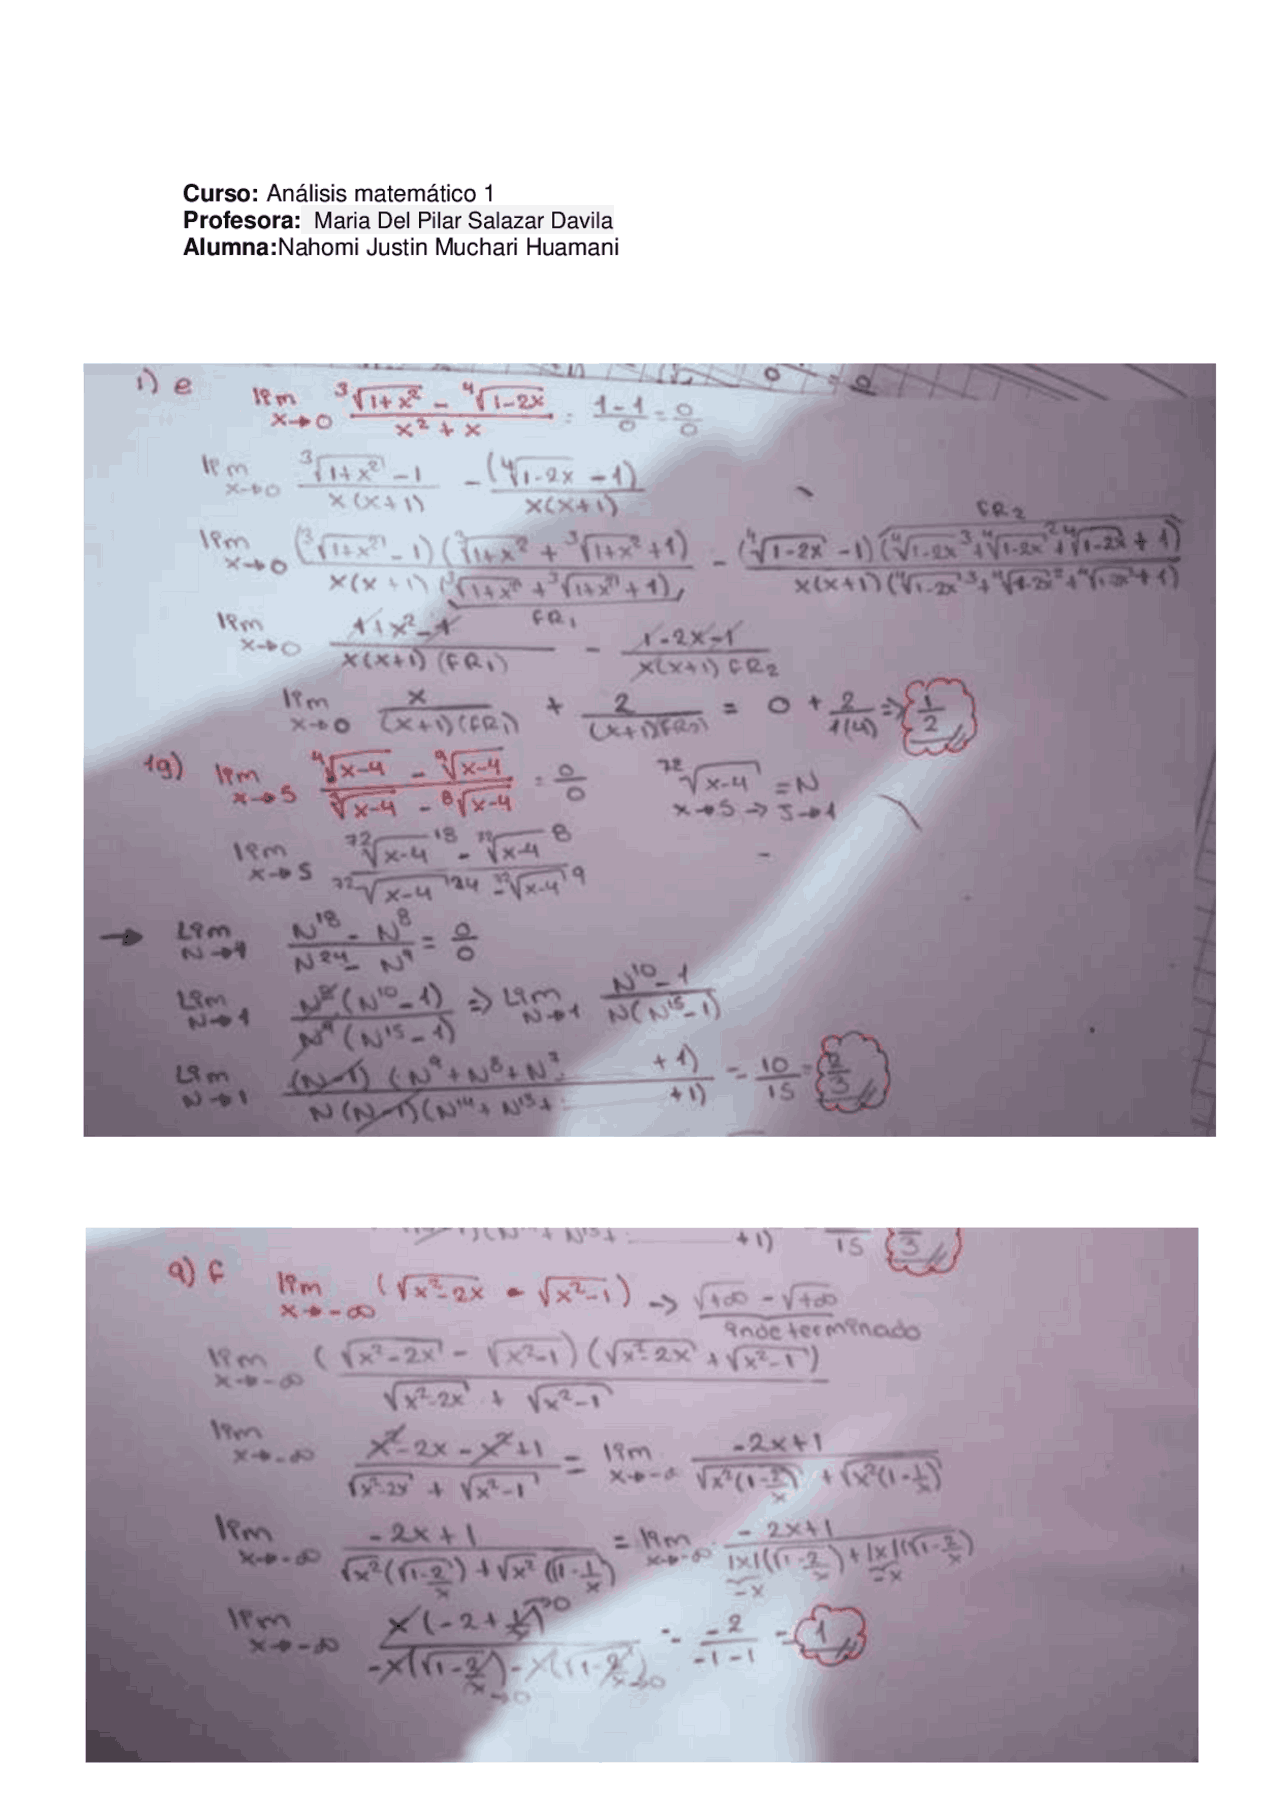 Curso: Análisis matemático 1
Profesora: Maria Del Pilar Salazar Davila
Alumna:Nahomi Justin Muchari Huamani
1) e lim x→0 (∛(1+x²) - ∜(1-2x))/(x² + x) = (1-1)/0 = 0/0
lim x→0 (∛(1+x²) - 1)/(x(x+1)) - (∜(1-2x) - 1)/(x(x+1))
FR₂
lim x→0 (∛(1+x²) - 1)(∛(1+x²)² + ∛(1+x²) + 1)/(x(x+1)(∛(1+x²)² + ∛(1+x²) + 1)) - (∜(1-2x) - 1)(∜(1-2x)³ + ∜(1-2x)² + ∜(1-2x) + 1)/(x(x+1)(∜(1-2x)³ + ∜(1-2x)² + ∜(1-2x) + 1))
FR₁
lim x→0 (1+x²-1)/(x(x+1)(FR₁)) - (1-2x-1)/(x(x+1) FR₂)
lim x→0 x/((x+1)(FR₁)) + 2/((x+1)(FR₂)) = 0 + 2/1(4) ⇒ 1/2
1g) lim x→5 (∜(x-4) - ⁹√(x-4))/(∛(x-4) - ⁸√(x-4)) = 0/0 ⁷²√(x-4) = N
x→5 → 5→1
lim x→5 (⁷²√(x-4)¹⁸ - ⁷²√(x-4)⁸)/(⁷²√(x-4)²⁴ - ⁷²√(x-4)⁹)
→ Lim N→1 (N¹⁸ - N⁸)/(N²⁴ - N⁹) = 0/0
Lim N→1 N⁸(N¹⁰-1)/(N⁹(N¹⁵-1)) ⇒ Lim N→1 (N¹⁰-1)/(N(N¹⁵-1))
Lim N→1 (N-1)(N⁹+N⁸+N⁷ +1)/(N(N-1)(N¹⁴+N¹³+ +1)) = 10/15 = 2/3
+1) 15 3
9) f lim x→-∞ (√(x²-2x) - √(x²-1)) → √+∞ - √+∞
indeterminado
lim x→-∞ (√(x²-2x) - √(x²-1))(√(x²-2x) + √(x²-1))/(√(x²-2x) + √(x²-1))
lim x→-∞ (x²-2x-x²+1)/(√(x²-2x) + √(x²-1)) = lim x→-∞ (-2x+1)/(√(x²(1-2/x)) + √(x²(1-1/x)))
lim x→-∞ (-2x+1)/(√x²(√(1-2/x)) + √x²(√(1-1/x))) = lim x→-∞ (-2x+1)/(|x|(√(1-2/x)) + |x|(√(1-2/x)))
-x -x
lim x→-∞ x(-2+1/x)→0/(-x(√(1-2/x)) - x(√(1-2/x))) = -2/(-1-1) = 1
→0 →0